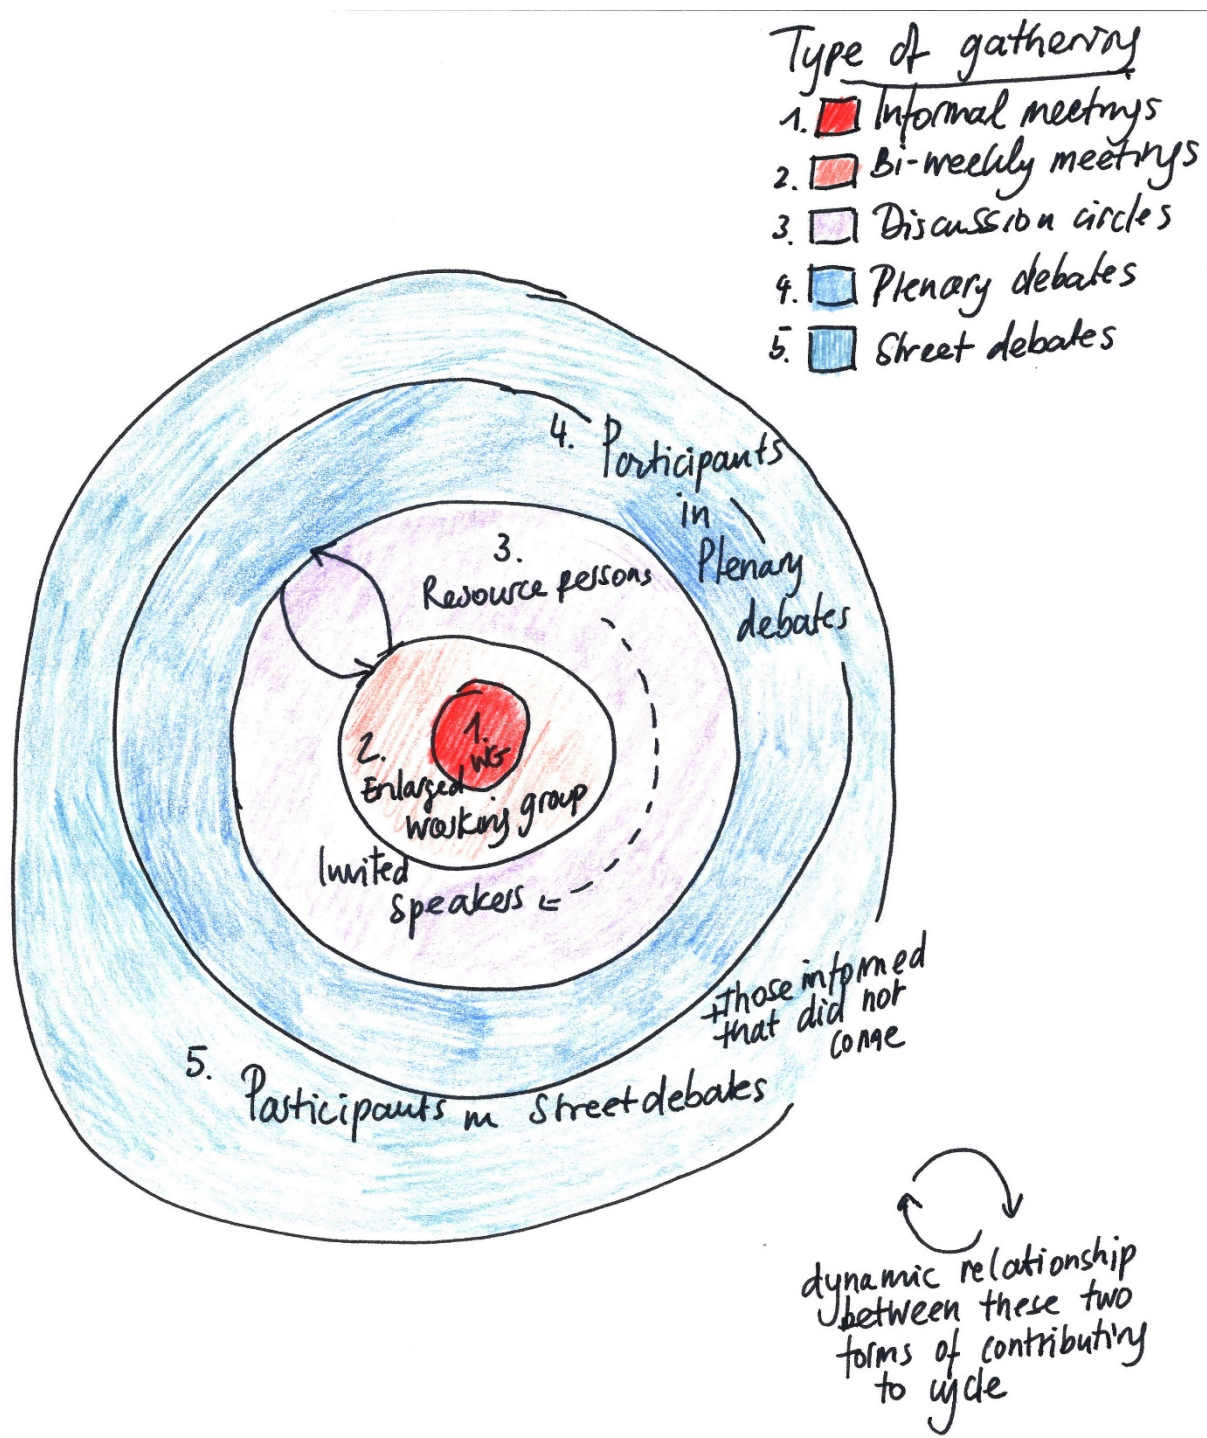 Type of gathering
1. Informal meetings
2. Bi-weekly meetings
3. Discussion circles
4. Plenary debates
5. Street debates
4. Participants
in
Plenary
debates
3.
Resource persons
1.
WG
2.
Enlarged
working group
Invited
speakers
+those informed
that did not
come
5. Participants in Street debates
dynamic relationship
between these two
forms of contributing
to cycle